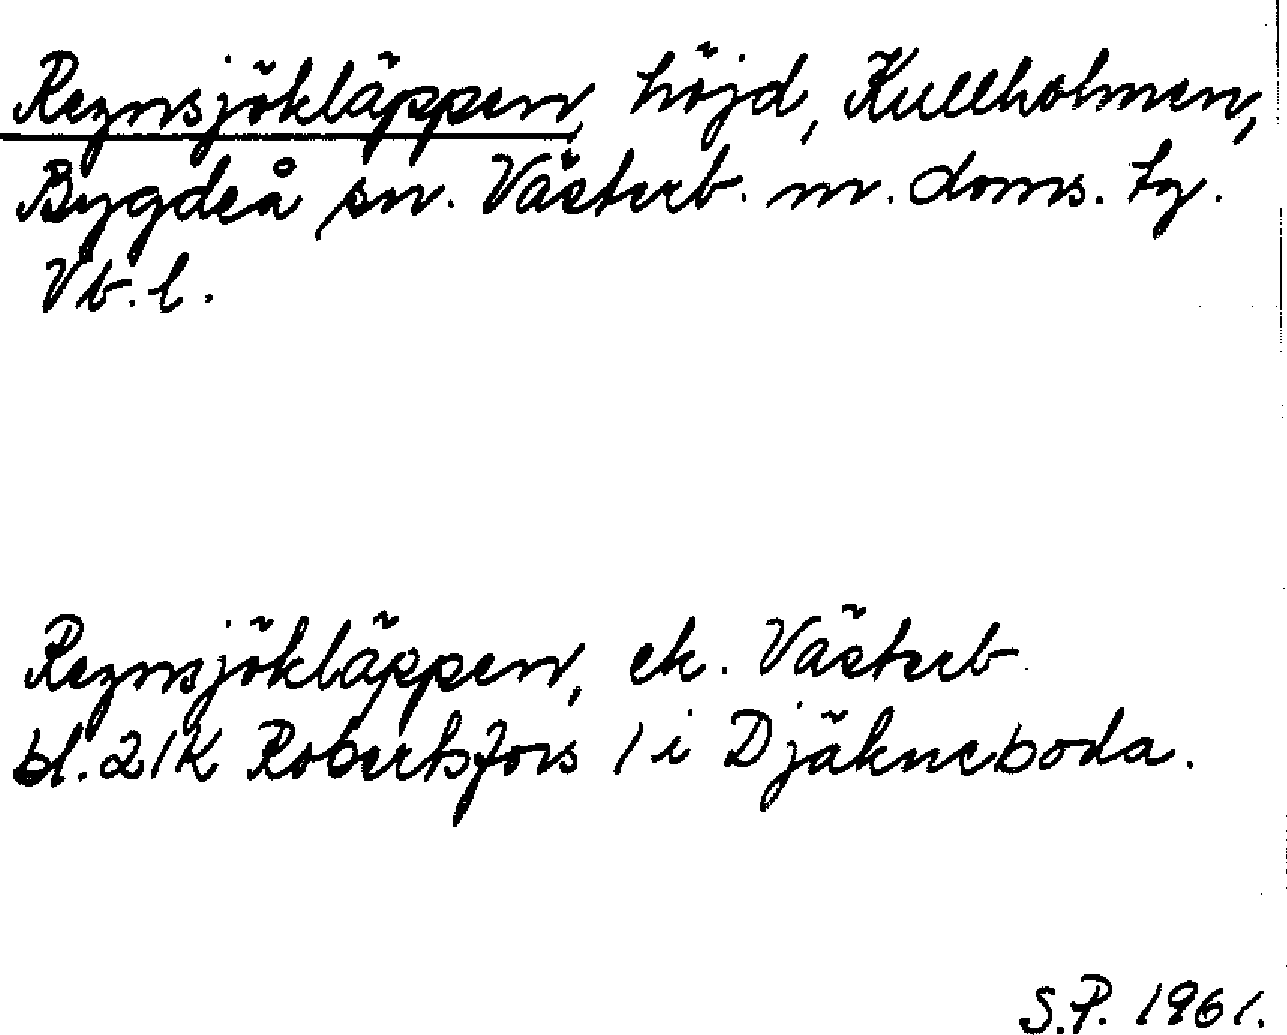 Regnsjökläppen, höjd, Kullholmen,
Bygdeå sn. Västerb. m. doms. tg.
Vb. l.
Regnsjökläppen, ek. Västerb.
bl. 21K Robertsfors 1 i Djäkneboda.
S.P. 1961.